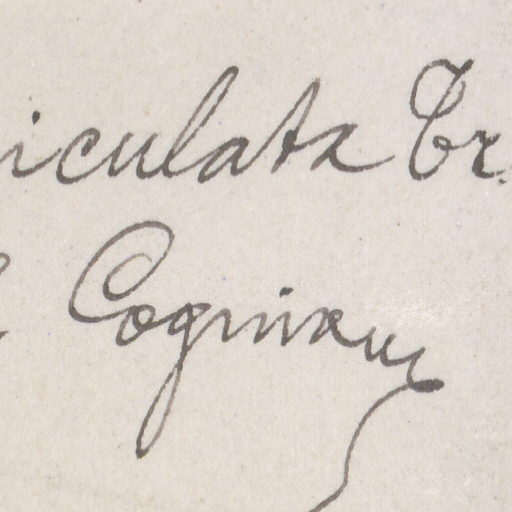 iculata Tr.
Cogniaux